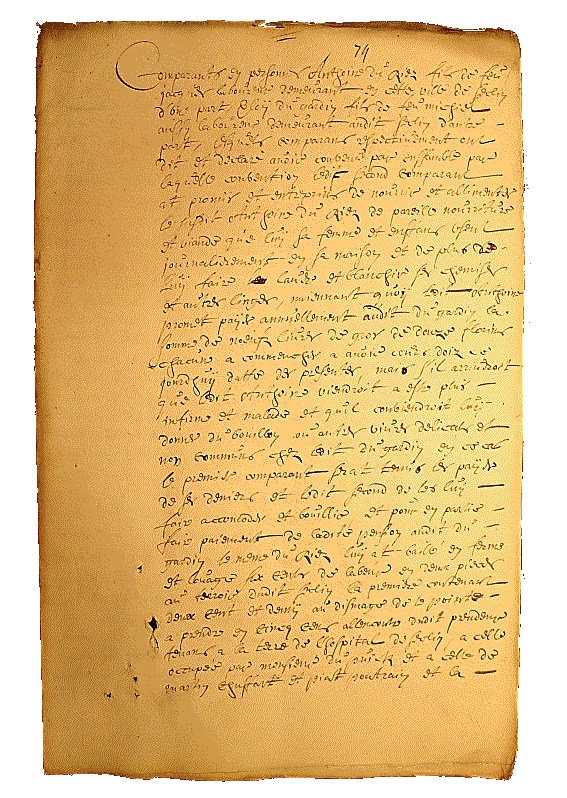 74
Comparants en personnes Anthoine du Riez fils de feu
jacques laboureur demeurant en ceste ville de seclin
d'une part du gardin fils de feu michiel
aussy laboureur demeurant audit seclin d'autre
part, lesquels comparans respectivement ont
dit et declaré avoir convenu par ensamble par
laquelle convention ledit second comparant
at promis et entreprins de nourrir et allimenter
le susdit Anthoine du Riez de pareille nourriture
et viande que luy sa femme et enffans useront
journalierement en sa maison et de plus de
luy faire laver et blanchir ses chemises
et autres linges, moiennant quoy ledit Anthoine
promet paÿer annuellement audit du gardin la
somme de noeuf livres de gros de douze florins
chacune a commencher a avoir cours doiz ce
jourdhuÿ datte des presentes, mais s'il arriveroit
que ledit Anthoine viendroit a estre plus
infirme et malade et quil conviendroit luy
donner du bouillon ou autres vivres delicats et
non communs chez ledit du gardin en ce cas
le premier comparant serat tenus les paÿer
de ses deniers et ledit second de les luy
faire accomoder et bouillir et pour en partie
faire paiement de ladite pension audit du
gardin le meme du Riez luy at baillé en ferme
et louage six cents de labeur en deux pieces
au terroir dudit seclin la premiere contenant
deux cent et demy au dismage de le pointe
a prendre en cincq cens allencontre dudit preneur
tenans a la terre de l'hospital de seclin a celle
occupée par monsieur du et a celle de
martin et piat poutrain et la